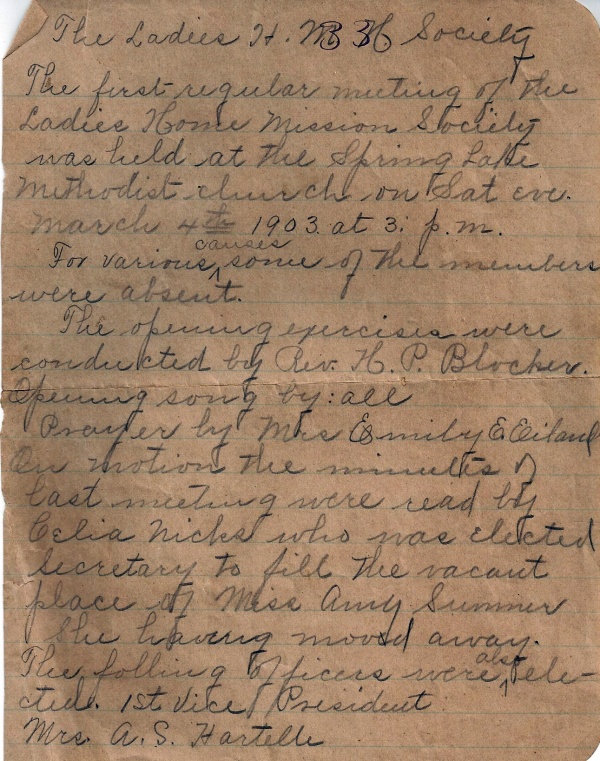 The Ladies H. M Society
The first regular meeting of the
Ladies Home Mission Society
was held at the Spring Lake
Methodist church on Sat eve.
March 4th 1903 at 3. p.m.
For various causes some of the members
were absent.
The opening exercises were
conducted by Rev. H. P. Blocker.
Opening song by: all
Prayer by Mrs Emily E. Eiland
On motion the minutes of
last meeting were read by
Celia Nicks who was elected
Secretary to fill the vacant
place of Miss Amy Summer
She having moved away.
The folling officers were also ele-
cted. 1st Vice President
Mrs. A. S. Hartelle